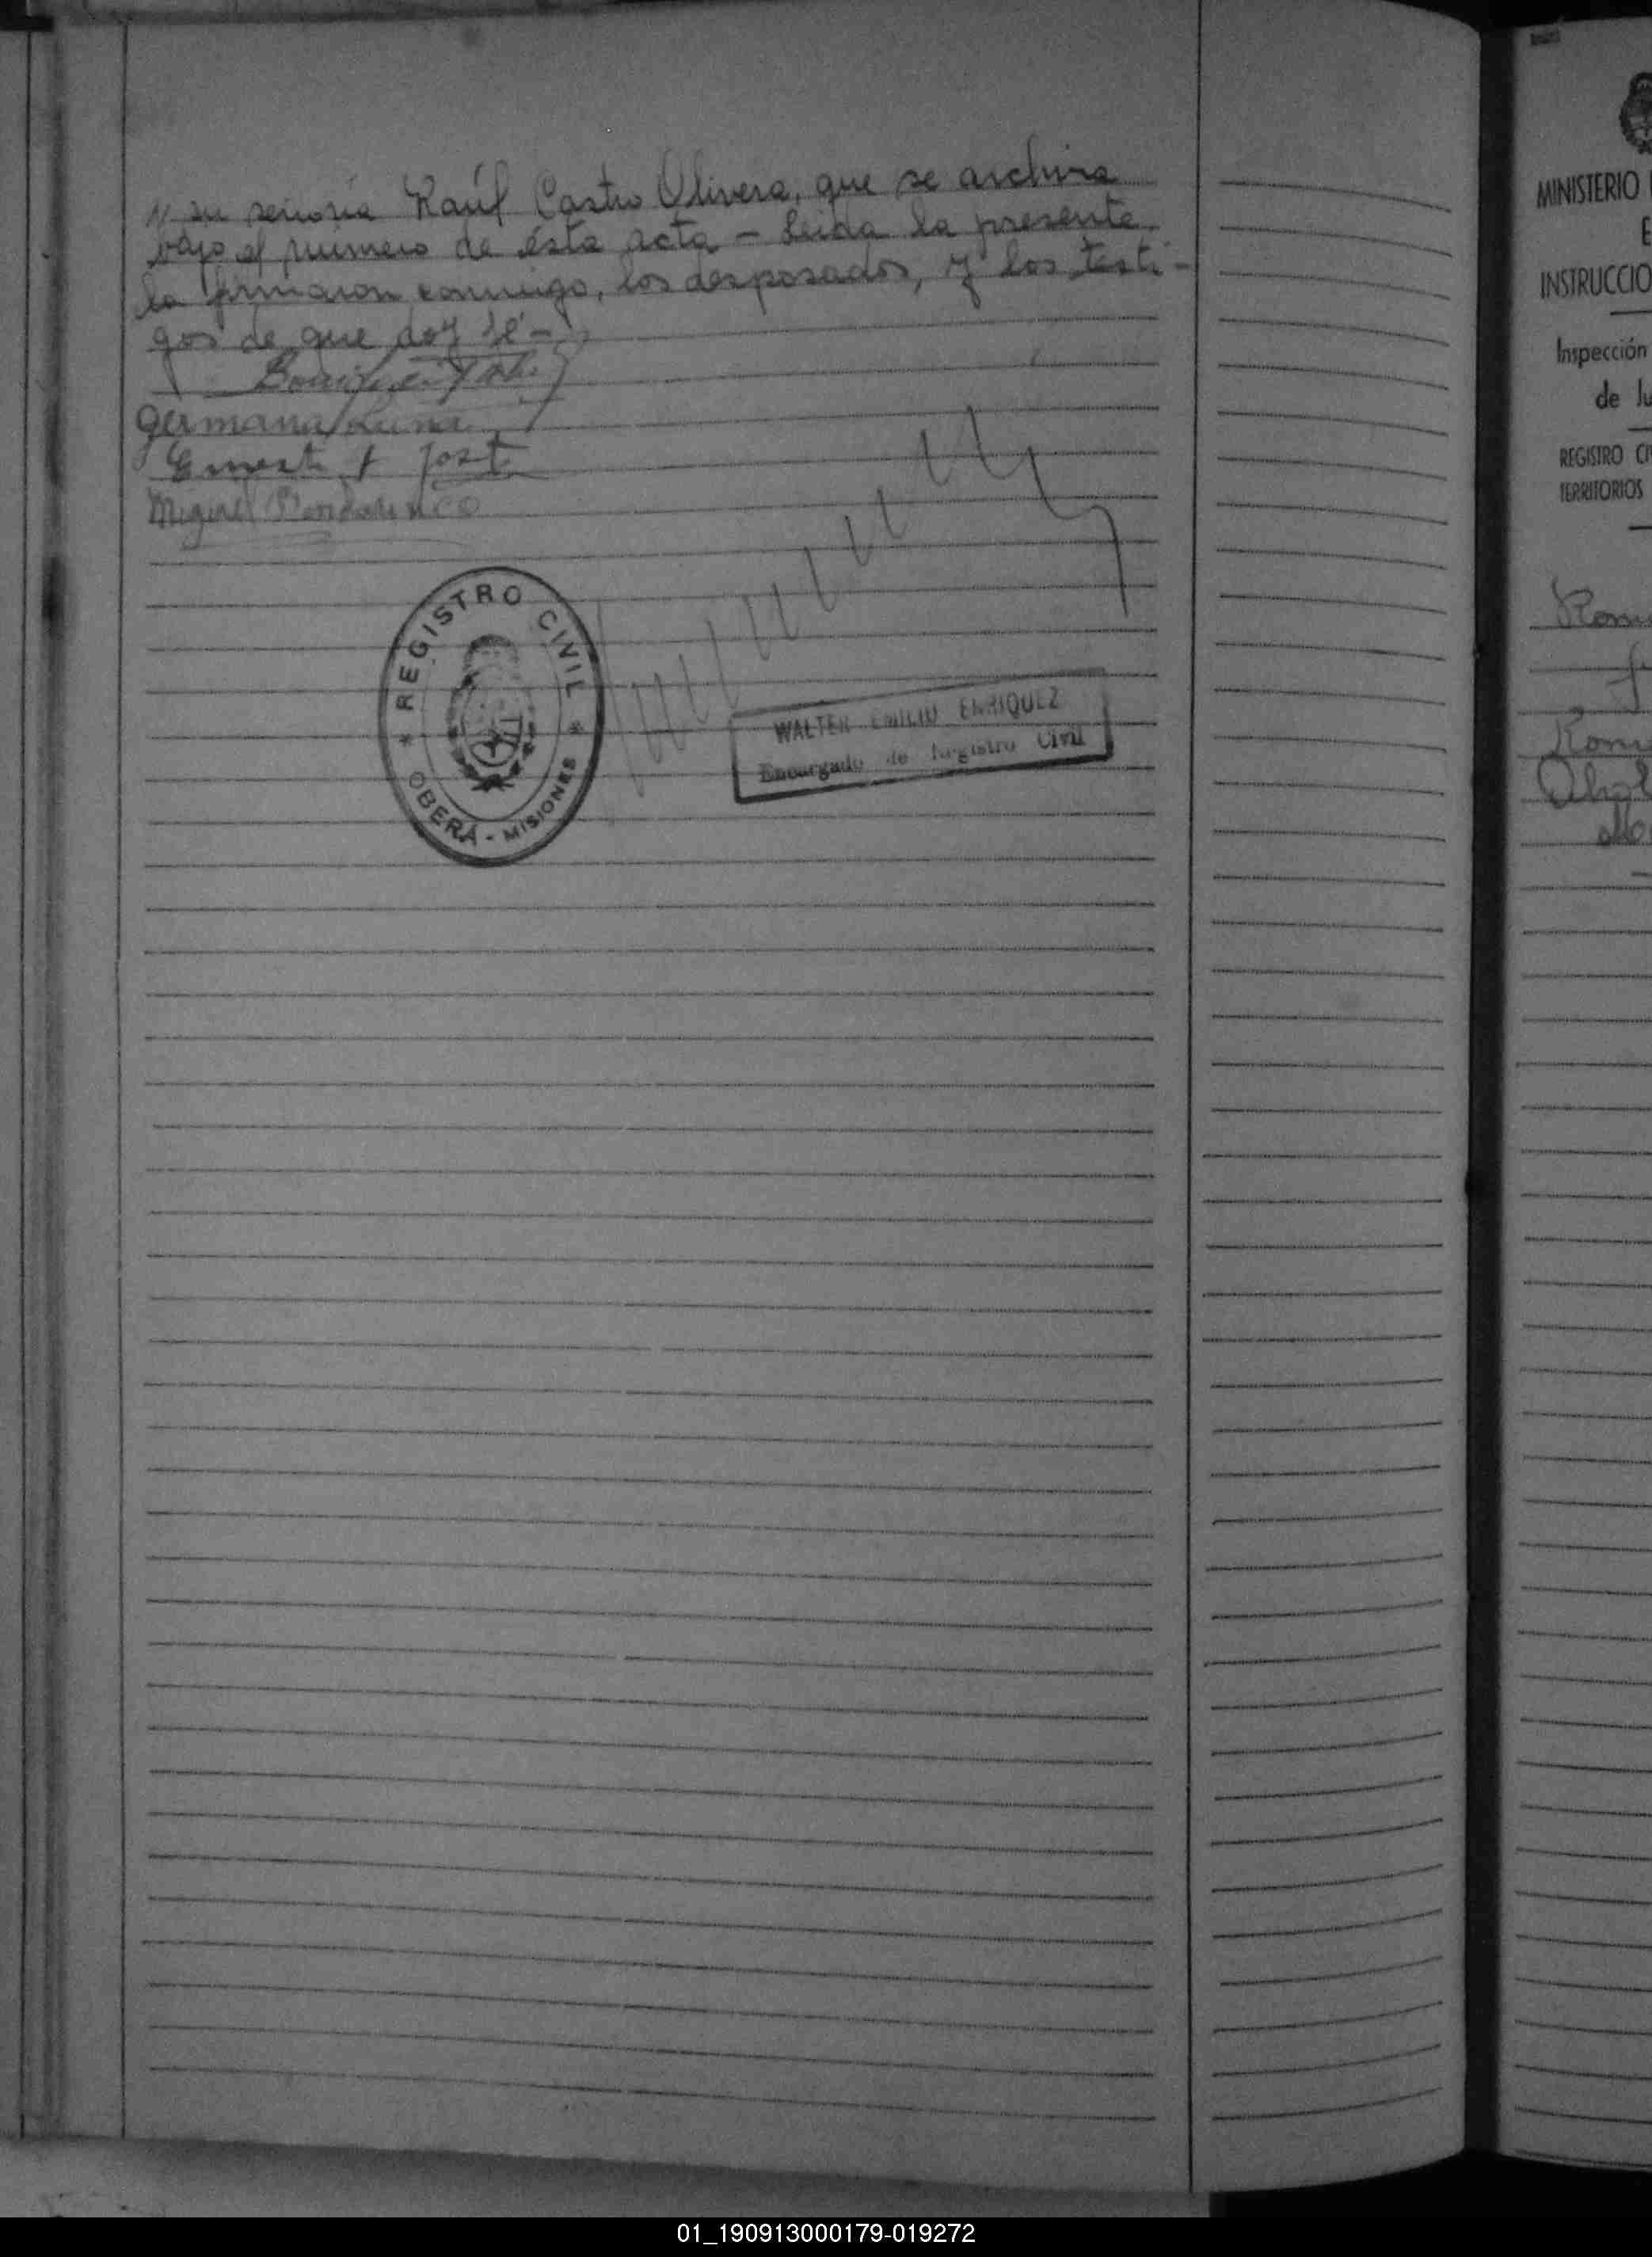 // su señoria Raúl Castro Olivera, que se archiva
bajo el numero de ésta acta - Leida la presente,
la firmaron conmigo, los desposados, y los testi-
gos de que doy fé -
Germana Luna
Ernesto Jost
Miguel
REGISTRO CIVIL
* *
OBERÁ - MISIONES
WALTER EMILIO ENRIQUEZ
Encargado de Registro Civil
MINISTERIO
E
INSTRUCCIO
Inspección
de Ju
REGISTRO CI
TERRITORIOS
Rom
01_190913000179-019272